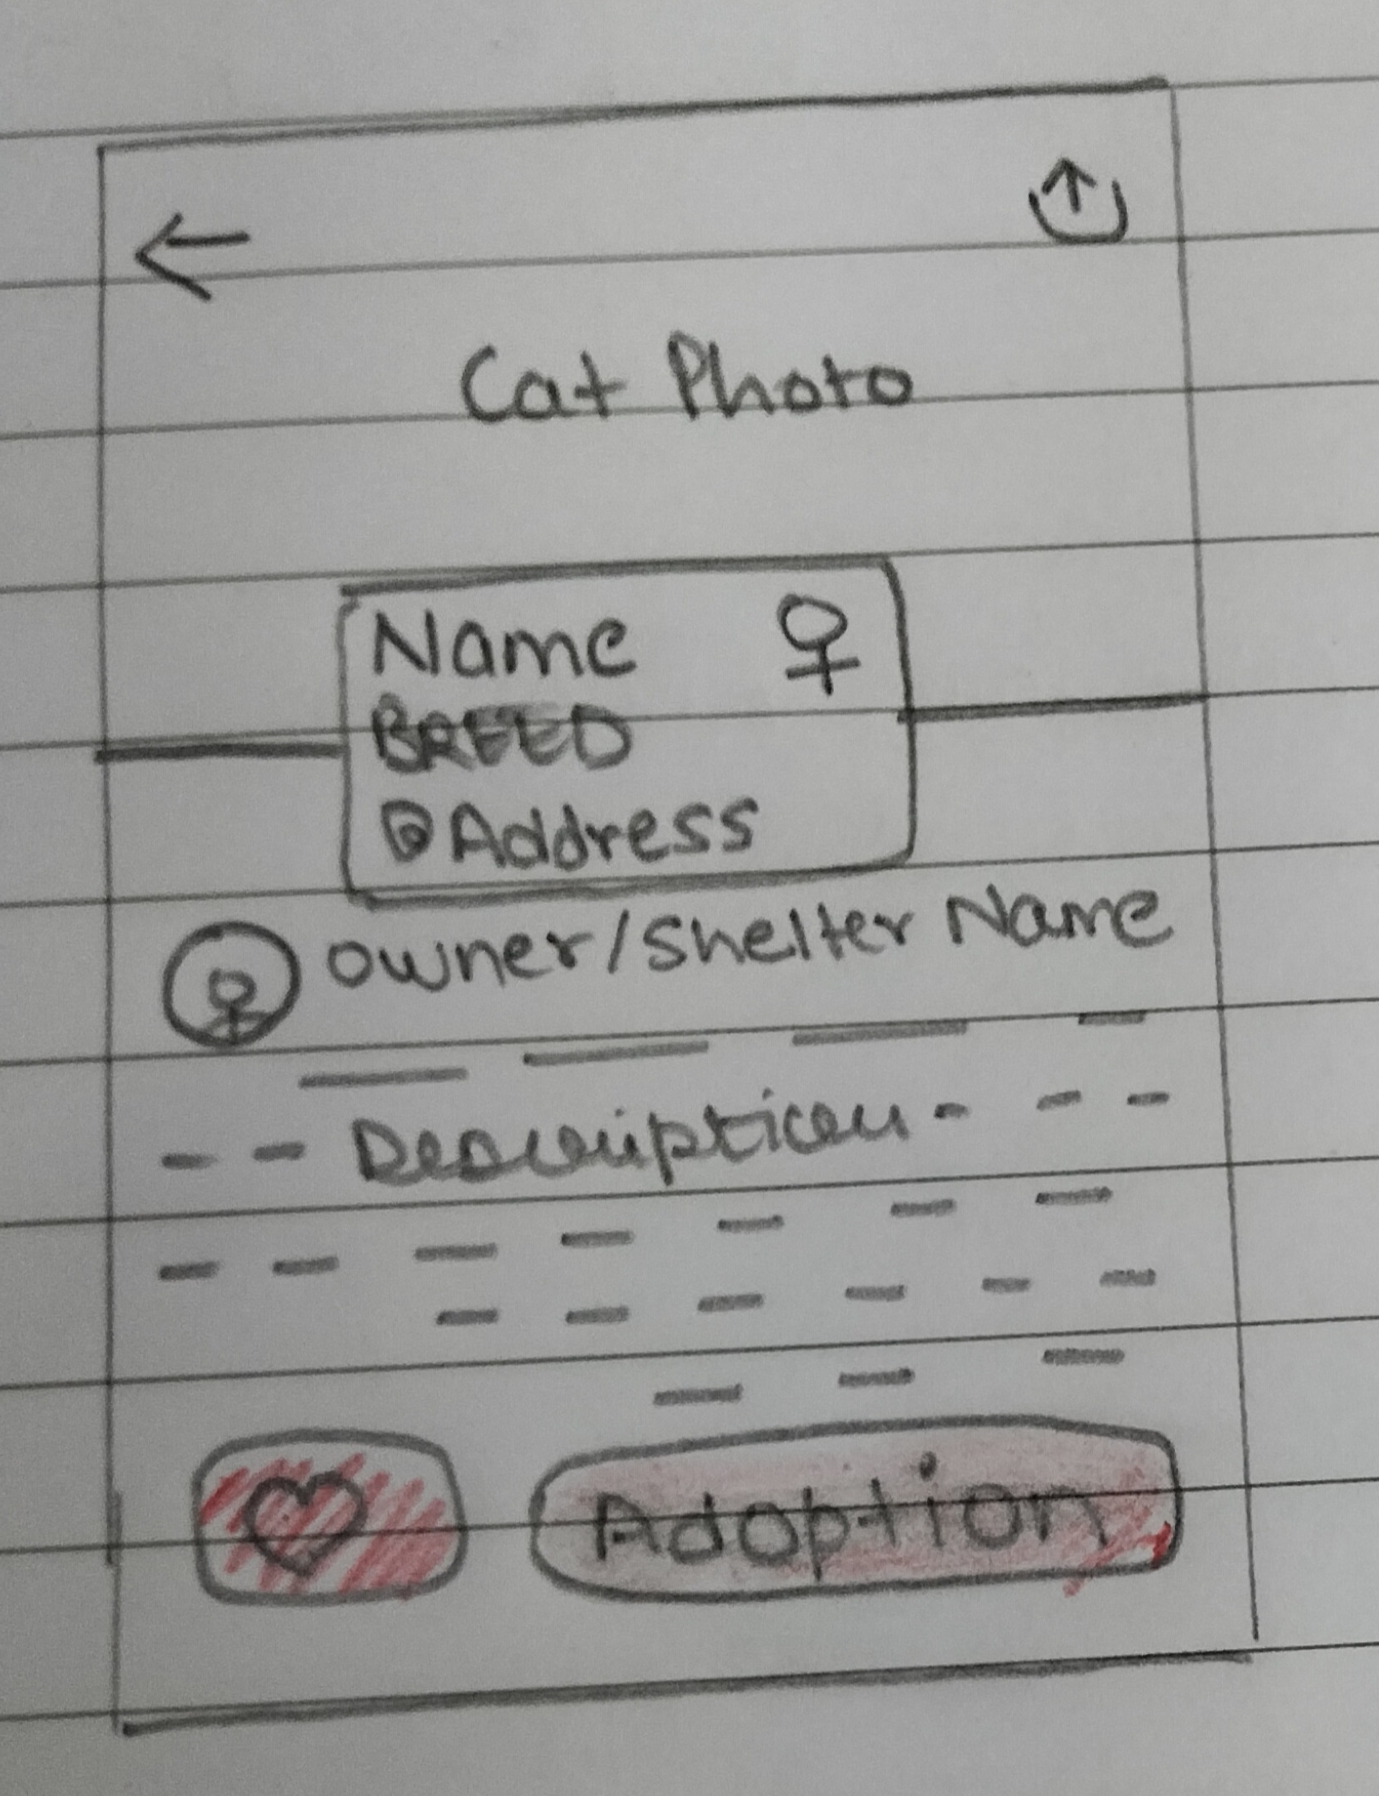 Cat Photo
Name
BREED
Address
owner/Shelter Name
Description
Adoption